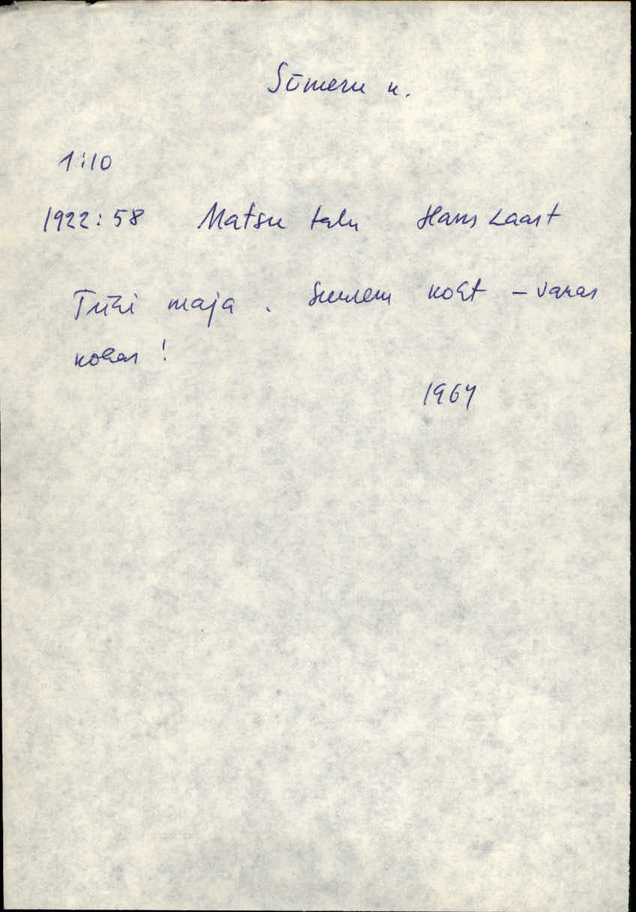 Sõmeru k.
1:10
1922:58 Matsu talu Hans Laast
maja. Suurem koht – varas
kohas!
1964